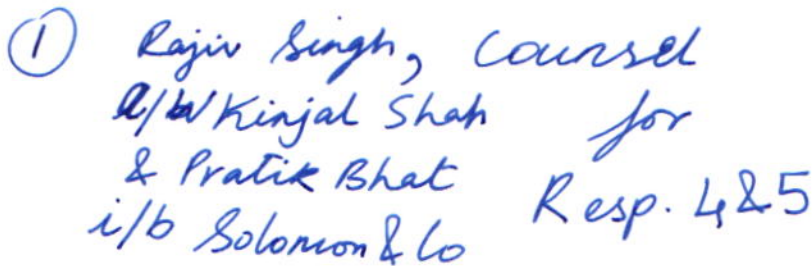 ① Rajiv Singh, Counsel
a/w Kinjal Shah for
& Pratik Bhat
i/b Solomon & Co Resp. 4 & 5